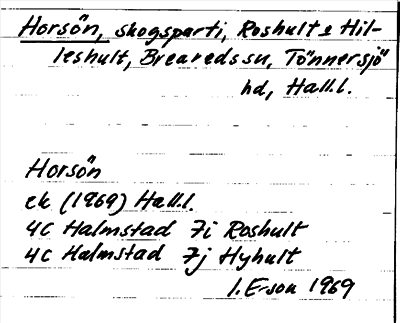 Horsön, skogsparti, Roshult o Hil-
leshult, Breareds sn, Tönnersjö
hd, Hall.l.
Horsön
ek (1969) Hall.l.
4C Halmstad 7i Roshult
4C Halmstad 7j Hyhult
I. E-son 1969